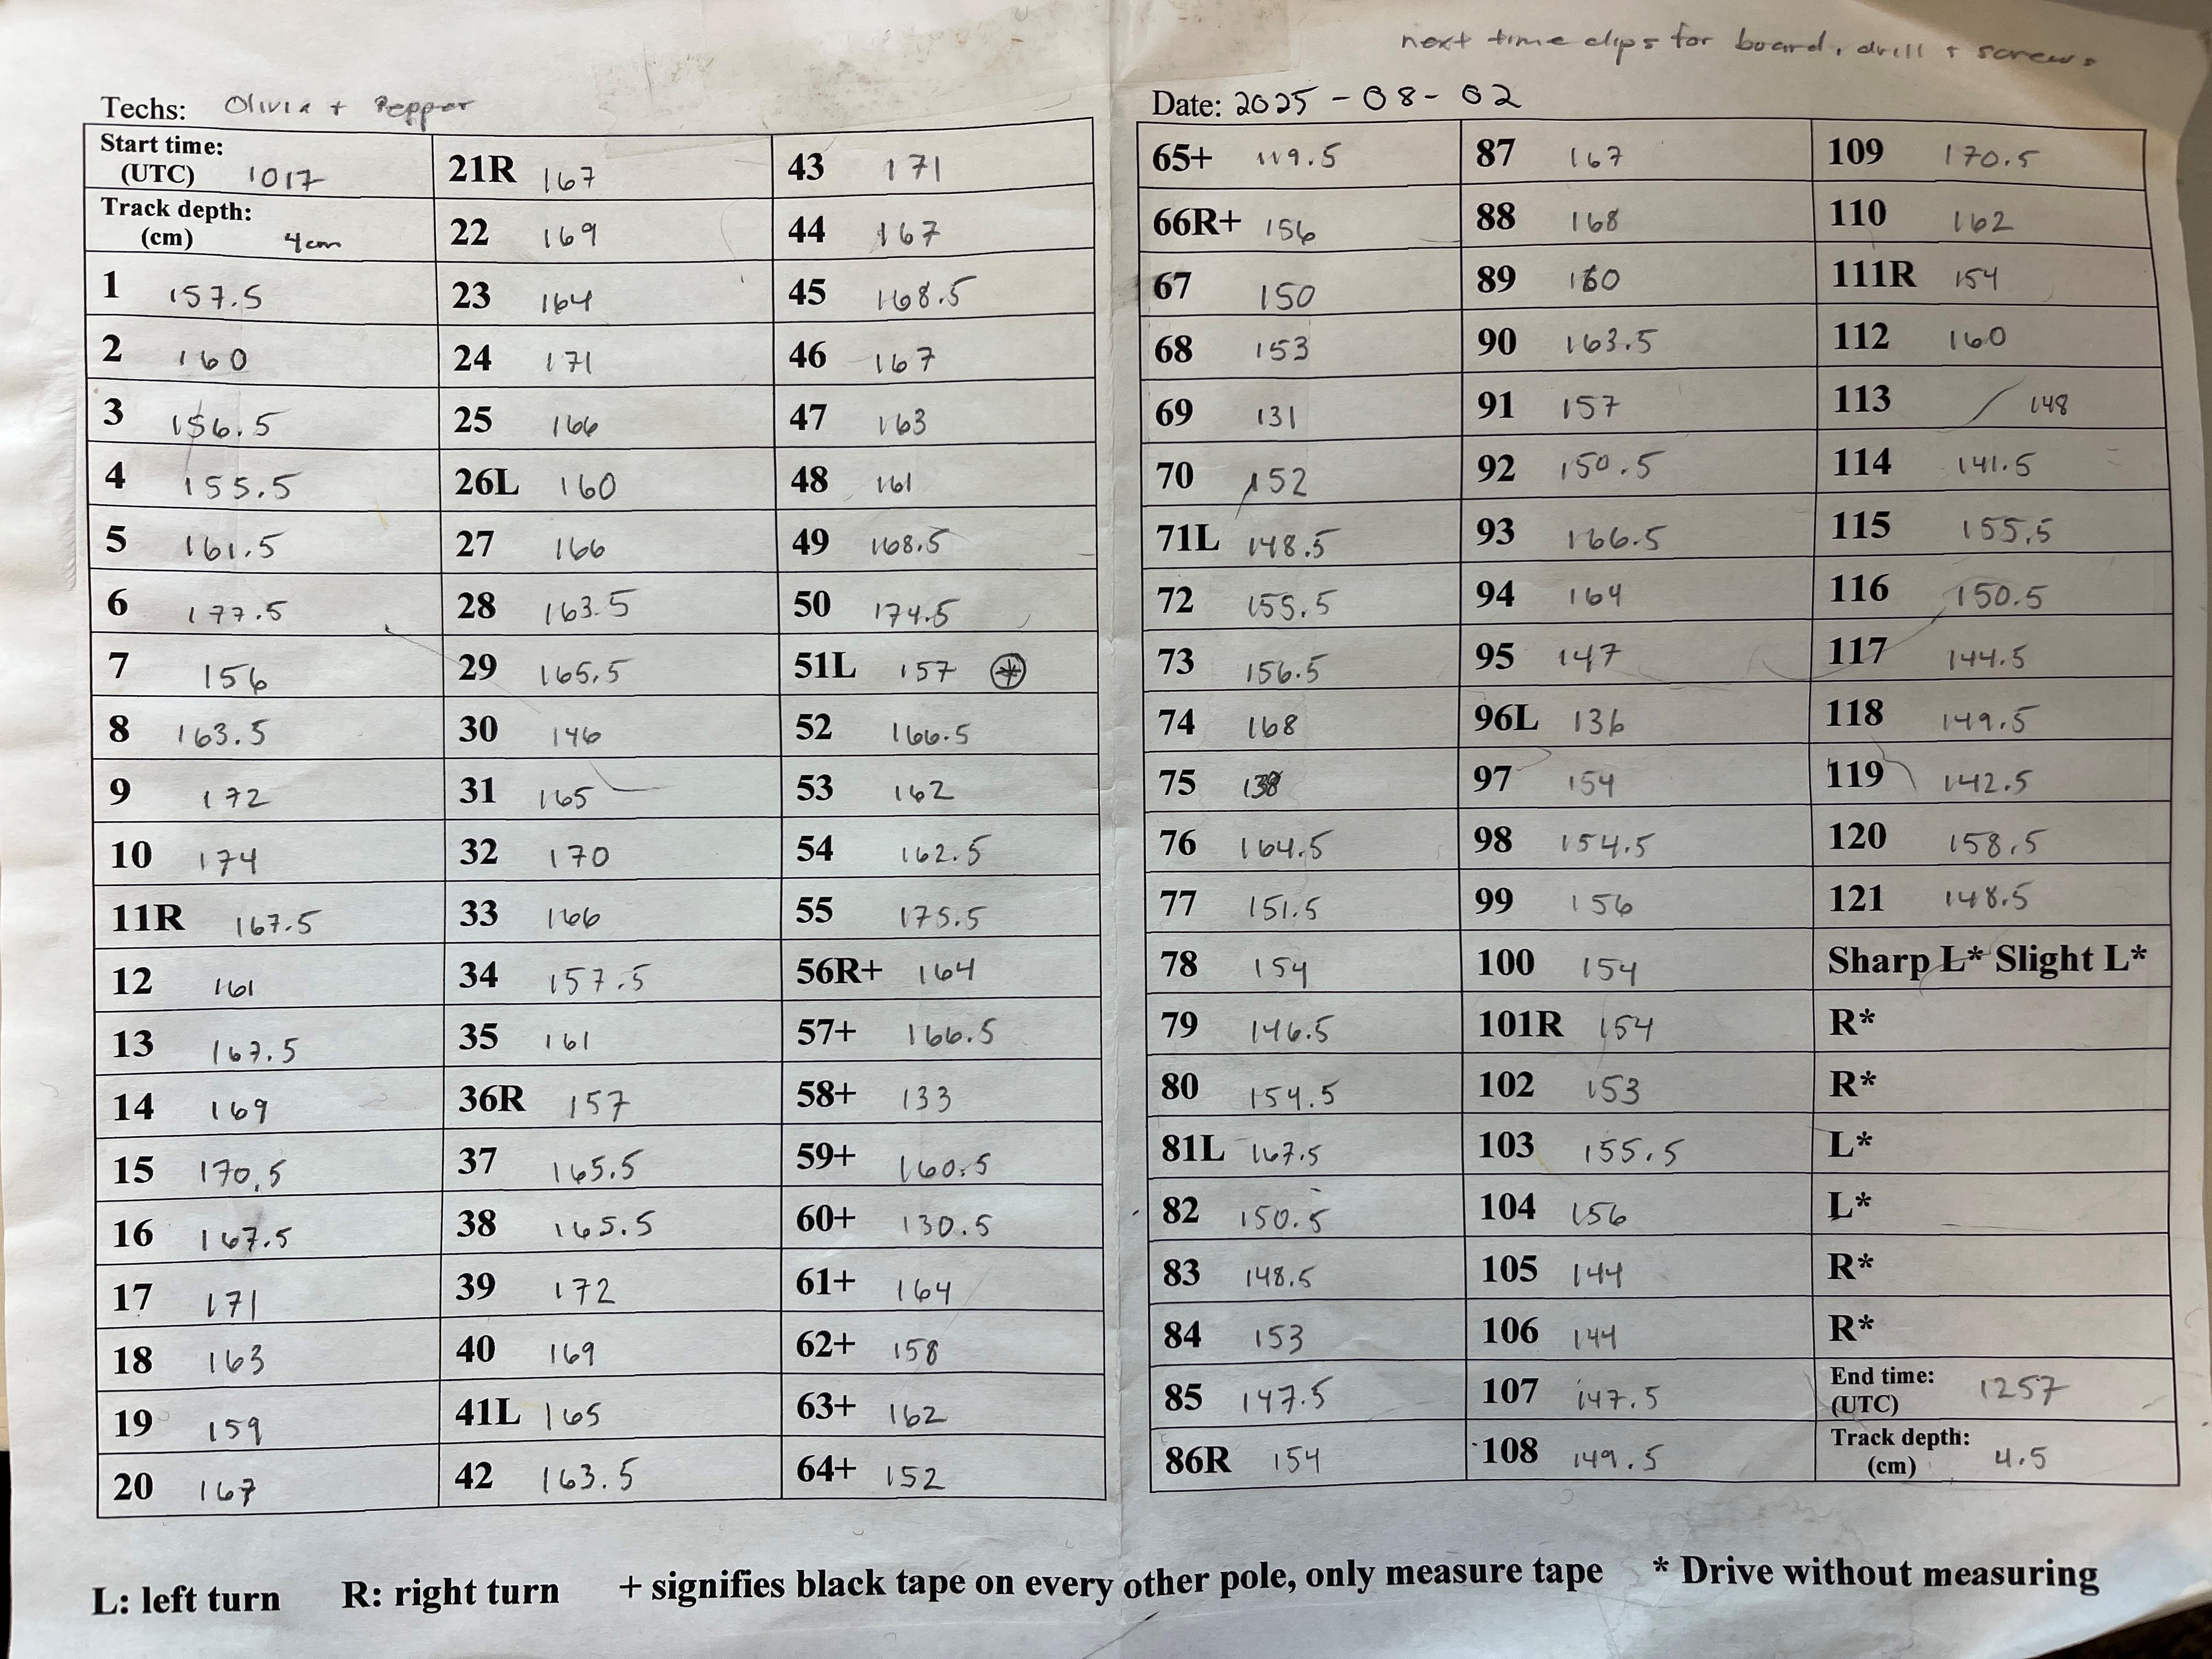 next time clips for board, drill + screws
Techs: Olivia + Pepper
Date: 2025-08-02
Start time: (UTC) 1017
Track depth: (cm) 4cm
1 157.5
2 160
3 156.5
4 155.5
5 161.5
6 177.5
7 156
8 163.5
9 172
10 174
11R 167.5
12 161
13 167.5
14 169
15 170.5
16 167.5
17 171
18 163
19 159
20 167
21R 167
22 169
23 164
24 171
25 166
26L 160
27 166
28 163.5
29 165.5
30 146
31 165
32 170
33 166
34 157.5
35 161
36R 157
37 165.5
38 165.5
39 172
40 169
41L 165
42 163.5
43 171
44 167
45 168.5
46 167
47 163
48 161
49 168.5
50 174.5
51L 157 *
52 166.5
53 162
54 162.5
55 175.5
56R+ 164
57+ 166.5
58+ 133
59+ 160.5
60+ 130.5
61+ 164
62+ 158
63+ 162
64+ 152
65+ 119.5
66R+ 156
67 150
68 153
69 131
70 152
71L 148.5
72 155.5
73 156.5
74 168
75
76 164.5
77 151.5
78 154
79 146.5
80 154.5
81L 167.5
82 150.5
83 148.5
84 153
85 147.5
86R 154
87 167
88 168
89 160
90 163.5
91 157
92 150.5
93 166.5
94 164
95 147
96L 136
97 154
98 154.5
99 156
100 154
101R 154
102 153
103 155.5
104 156
105 144
106 144
107 147.5
108 149.5
109 170.5
110 162
111R 154
112 160
113 148
114 141.5
115 155.5
116 150.5
117 144.5
118 149.5
119 142.5
120 158.5
121 148.5
Sharp L* Slight L*
R*
R*
L*
L*
R*
R*
End time: (UTC) 1257
Track depth: (cm) 4.5
L: left turn R: right turn + signifies black tape on every other pole, only measure tape * Drive without measuring